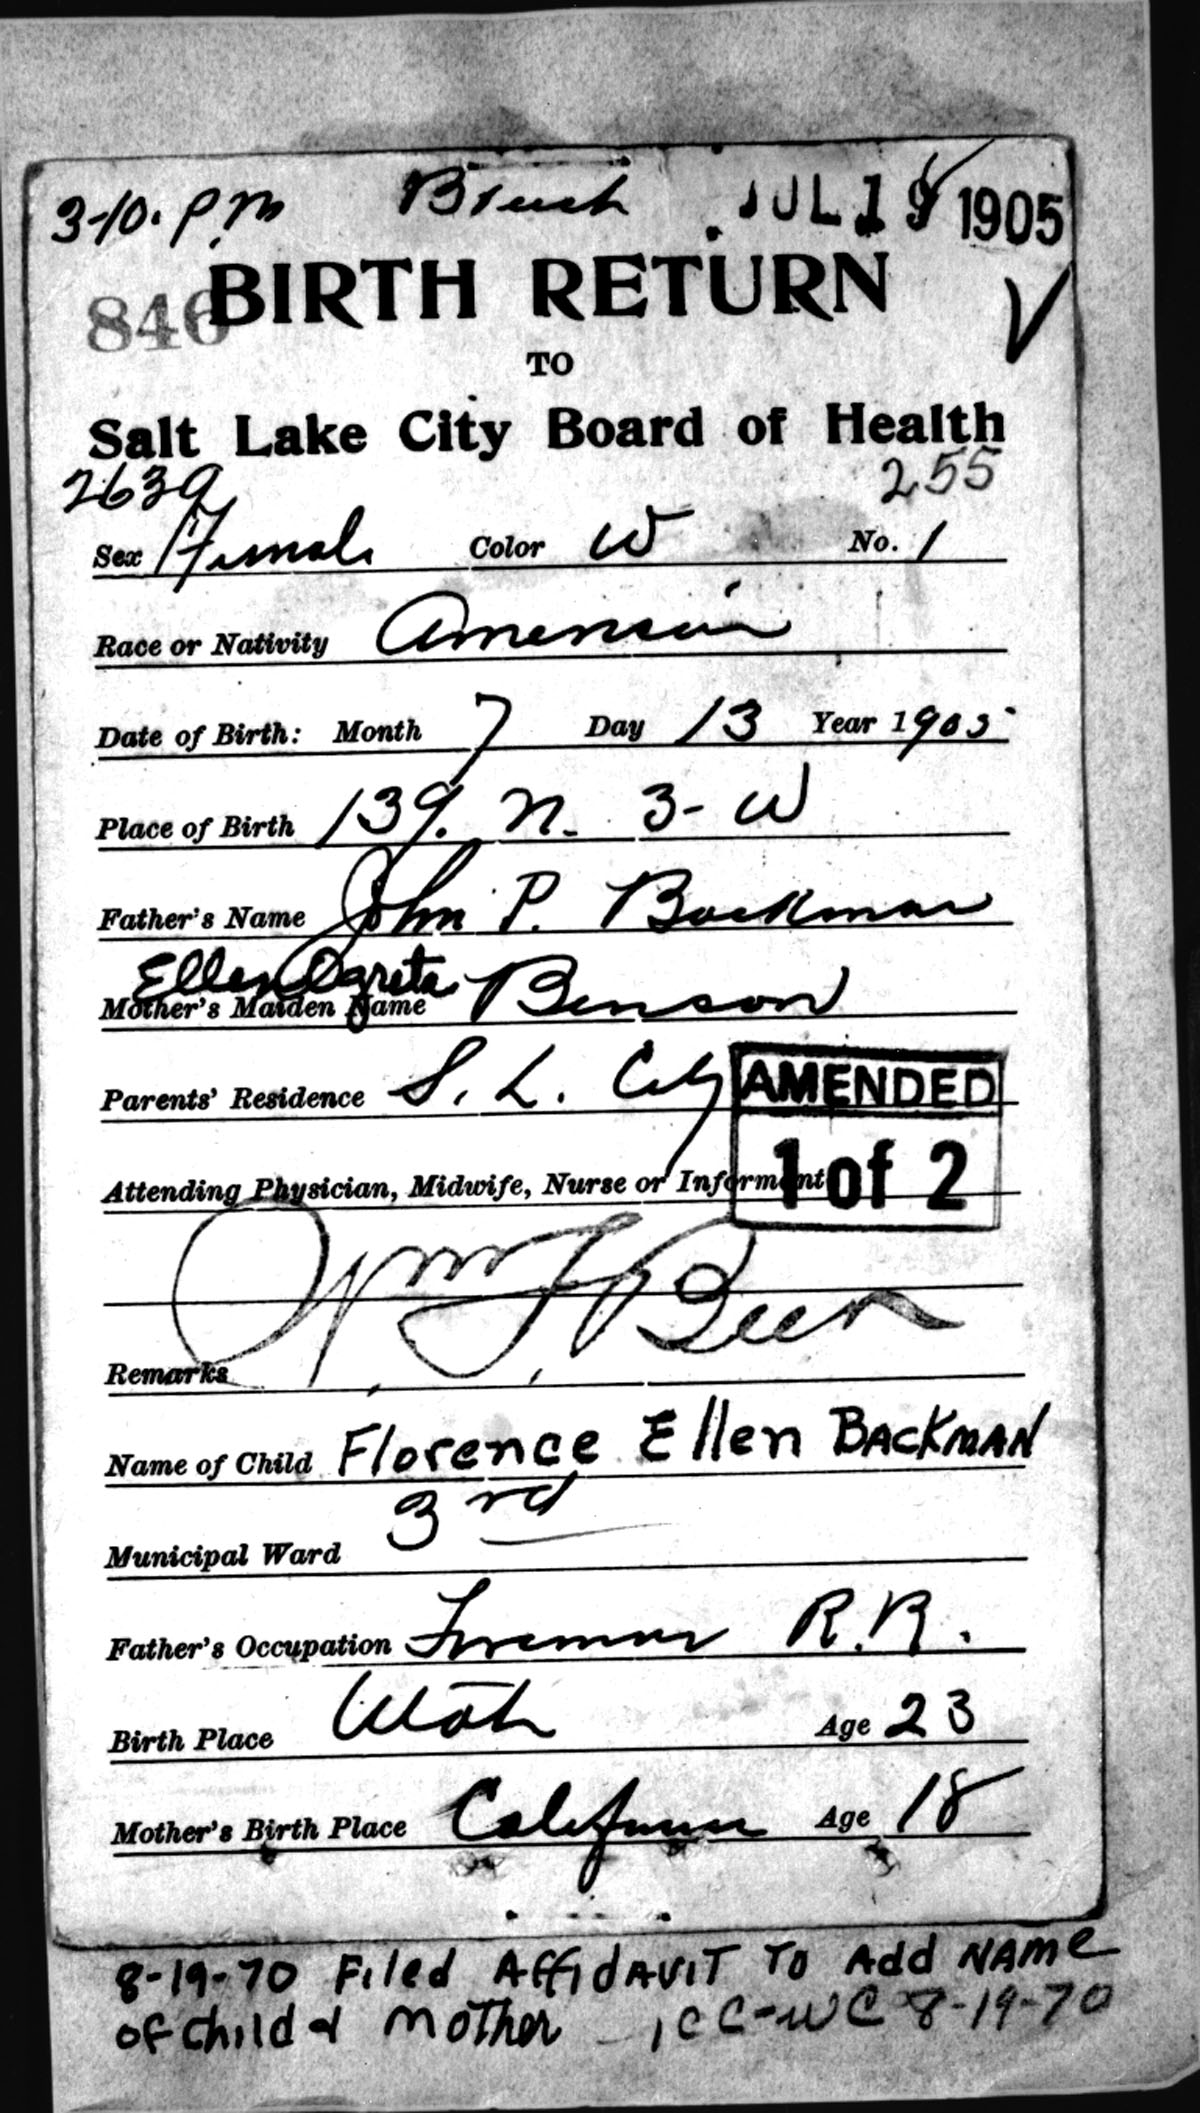 3-10. P.M JUL 19 1905
846 BIRTH RETURN
TO
Salt Lake City Board of Health
2639 255
Sex Female Color W No. 1
Race or Nativity American
Date of Birth: Month 7 Day 13 Year 1905
Place of Birth 139. N. 3- W
Father's Name John P. Backman
Ellen Agreta
Mother's Maiden Name Benson
Parents' Residence S. L. City
AMENDED
1 of 2
Attending Physician, Midwife, Nurse or Informant
Wm F Beer
Remarks
Name of Child Florence Ellen BACKMAN
Municipal Ward 3rd
Father's Occupation Foreman R.R.
Birth Place Utah Age 23
Mother's Birth Place California Age 18
8-19-70 Filed AffidAVIT To Add NAMe
of child & MoTher 1CC-WC 8-19-70